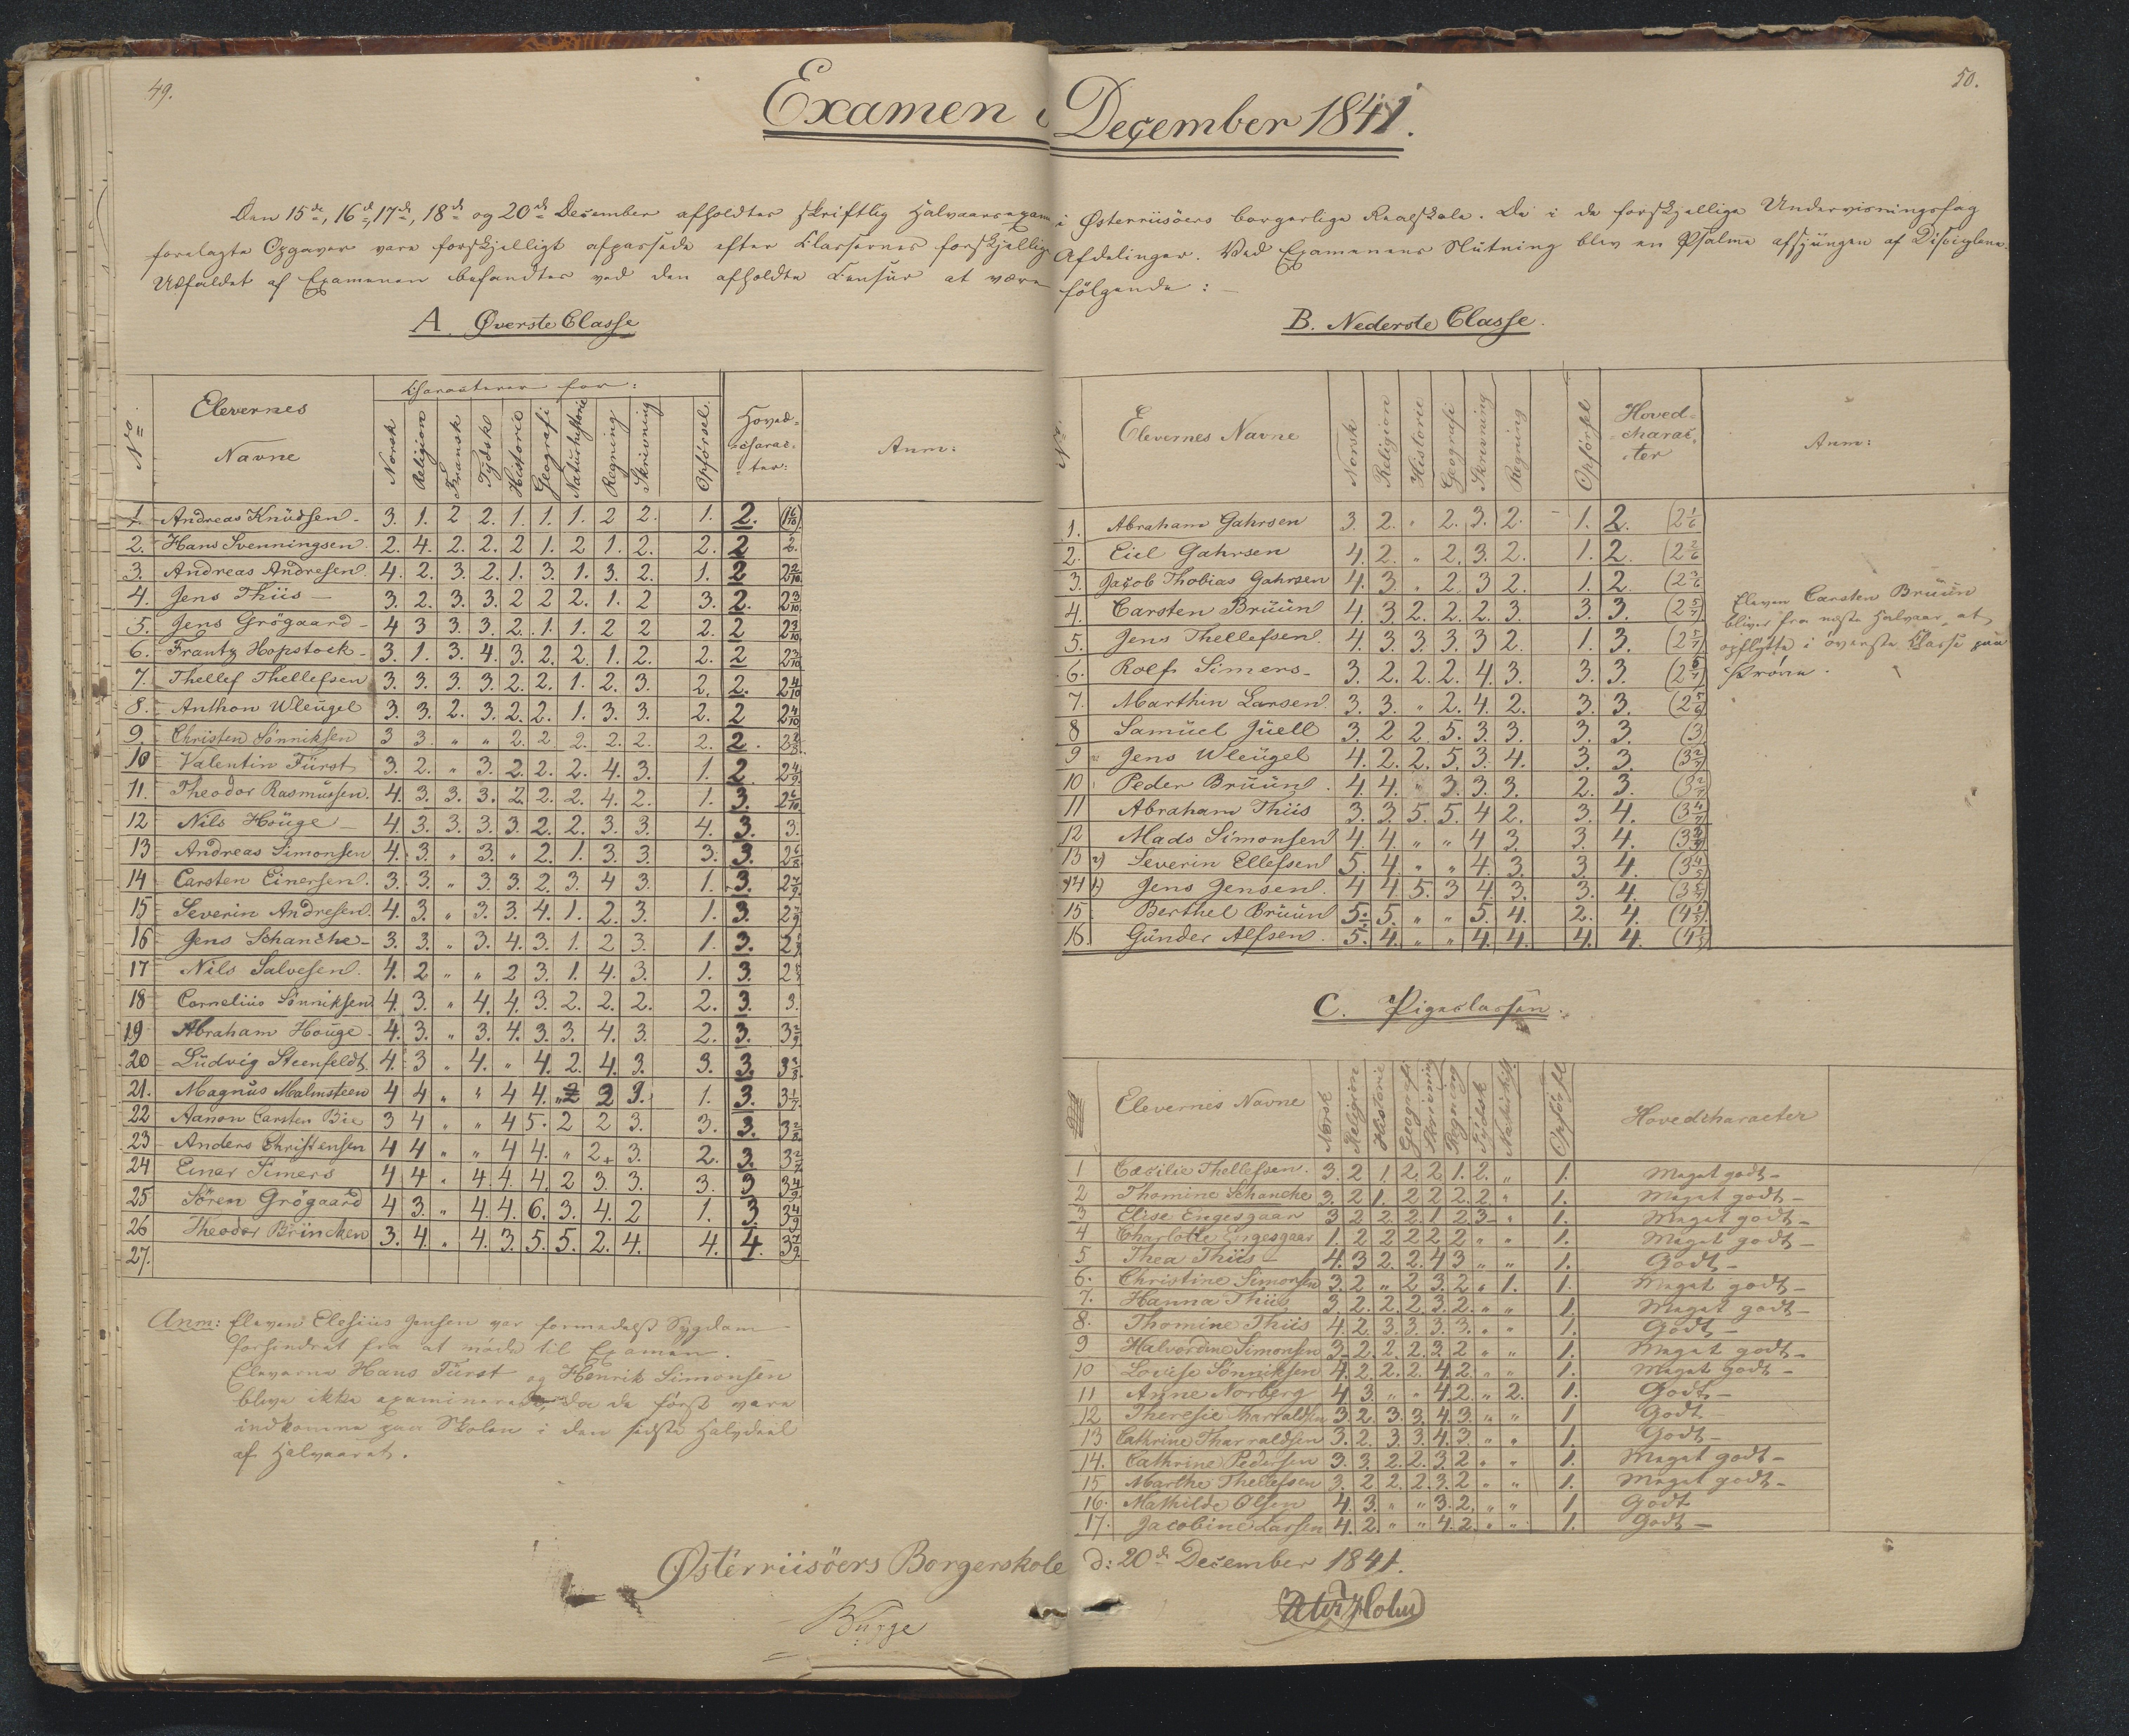 49.
50.
Examen i December 1841.
Den 15de, 16d, 17de, 18de og 20de December afholdtes skriftlig Halvaarsexam i Østerriisöers borgerlige Realskole. De i de forskjellige Undervisningsfag
forelagte Opgaver vare forskjelligt afpassede efter Classernes forskjellige Afdelinger. Ved Examenens Slutning blev en Psalme afsjungen af Disciplene.
Udfaldet af Examenen befandtes ved den afholdte Censur at være følgende: —
A. Øverste Classe
No. Elevernes Navne Characterer for: Norsk Religion Fransk Tydsk Historie Geografi Naturhistorie Regning Skrivning Opförsel. Hoved-charac-ter: Anm:
1. Andreas Knudsen 3. 1. 2 2. 1. 1. 1. 2 2. 1. 2. (1 6/10)
2. Hans Svenningsen 2. 4. 2. 2. 2 1. 2 1. 2. 2. 2 2.
3. Andreas Andresen 4. 2. 3. 2. 1. 3. 1. 3. 2. 1. 2 2 2/10
4. Jens Thiis — 3. 2. 3. 3. 2 2 2. 1. 2 3. 2. 2 3/10
5. Jens Grögaard 4 3 3. 3. 2. 1. 1. 2 2 2. 2 2 3/10
6. Frantz Hopstock 3. 1. 3. 4. 3. 2. 2. 1. 2. 2. 2 2 3/10
7. Thellef Thellefsen 3. 3. 3. 3. 2. 2. 1. 2. 3. 2. 2. 2 4/10
8. Anthon Wleügel 3. 3. 2. 3. 2. 2. 1. 3. 3. 2. 2 2 4/10
9. Christen Sönniksen 3 3. " " 2. 2. 2. 2. 2. 2. 2.
10 Valentin Fürst 3. 2. " 3. 2. 2. 2. 4. 3. 1. 2. 2 4/9
11. Theodor Rasmussen. 4. 3. 3. 3. 2. 2. 2. 4. 2. 1. 3. 2 6/10
12 Nils Houge — 4. 3. 3. 3. 3. 2. 2. 3. 3. 4. 3. 3.
13 Andreas Simonsen 4. 3. " 3. " 2. 1. 3. 3. 3. 3. 2 6/8
14 Carsten Einersen. 3. 3. " 3. 3. 2. 3. 4 3. 1. 3. 2 7/9
15 Severin Andresen. 4. 3. " 3. 3. 4. 1. 2. 3. 1. 3. 2 7/9
16 Jens Schanche 3. 3. " 3. 4. 3. 1. 2 3. 1. 3.
17 Nils Salvesen. 4. 2 " " 2 3. 1. 4. 3. 1. 3.
18 Cornelius Sönniksen 4. 3. " 4. 4. 3. 2. 2. 2. 2. 3. 3.
19 Abraham Houge 4. 3. " 3. 4. 3. 3. 4. 3. 2. 3. 3 2/9
20 Ludvig Steenfeldt. 4. 3 " 4. " 4. 2. 4. 3. 3. 3. 3 3/8
21. Magnus Malmsteen 4 4 " " 4 4. 1. 3. 3 1/7
22 Aanon Carsten Bie 3 4 " " 4 5. 2 2 3. 3. 3. 3 2/8
23 Anders Christensen 4 4 " " 4 4. " 2 3. 2. 3. 3 2/7
24 Einar Simers 4 4. " 4. 4. 4. 2 3. 3. 3. 3 3 4/9
25 Sören Grögaard 4 3. " 4. 4. 6. 3. 4. 2 1. 3 3 4/9
26 Theodor Brincken 3. 4. " 4. 3. 5. 5. 2. 4. 4. 4. 3 7/9
27.
Anm: Eleven Elesius Jensen var formedelst Sygdom
forhindret fra at møde til Examen.
Eleverne Hans Fürst og Henrik Simonsen
bleve ikke examinerede, da de først vare
indkomne paa Skolen i den sidste Halvdeel
af Halvaaret.
B. Nederste Classe.
No. Elevernes Navne Norsk Religion Historie Geografi Skrivning Regning Opförsel Hoved-charac-ter Anm:
1. Abraham Gahrsen 3. 2. " 2. 3. 2. 1. 2. (2 1/6)
2. Eiel Gahrsen 4. 2. " 2. 3. 2. 1. 2. (2 2/6)
3. Jacob Thobias Gahrsen 4. 3. " 2. 3 2. 1. 2. (2 3/6)
4. Carsten Bruun 4. 3 2. 2. 2. 3. 3. 3. (2 5/7)
5. Jens Thellefsen. 4. 3. 3. 3. 3 2. 1. 3. (2 5/7)
6. Rolf Simers 3. 2. 2. 2. 4. 3. 3. 3.
7. Marthin Larsen 3. 3. " 2. 4. 2. 3. 3. (2 5/6)
8 Samuel Juell 3. 2 2. 5. 3. 3. 3. 3. (3)
9 Jens Wleügel 4. 2. 2. 5. 3. 4. 3. 3. (3 2/7)
10 Peder Bruun 4. 4. " 3. 3. 3. 2. 3.
11 Abraham Thiis 3. 3. 5. 5. 4 2. 3. 4. (3 4/7)
12 Mads Simonsen 4. 4. " " 4 3. 3. 4.
13 Severin Ellefsen 5. 4. " " 4. 3. 3 4. (3 4/5)
14 Jens Jensen. 4 4. 5. 3 4. 3. 3. 4.
15 Berthel Bruun 5. 5. " " 5. 4. 2. 4. (4 1/5)
16. Gunder Alfsen. 5. 4. " " 4. 4. 4. 4. (4 1/5)
Eleven Carsten Bruun
bliver fra næste Halvaar at
opflytte i øverste Classe paa
Prøve.
C. Pigeclassen.
Elevernes Navne Norsk Religion Historie Geografi Skrivning Regning Tydsk Naturhist. Opförsel Hovedcharacter
1 Cæcilie Thellefsen. 3. 2 1. 2. 2 1. 2. " 1. Meget godt —
2 Thomine Schanche 3. 2 1. 2 2 2. 2. " 1. Meget godt —
3 Elise Engesgaar 3 2 2. 2. 1 2. 3 " 1. Meget godt —
4 Charlotte Engesgaar 1. 2 2 2 2 2 " " 1. Meget godt —
5 Thea Thiis 4. 3 2. 2. 4 3 " " 1. Godt —
6. Christine Simonsen 3. 2 " 2 3. 2 " 1. 1. Meget godt —
7. Hanna Thiis 3. 2. 2. 2 3. 2. " " 1. Meget godt —
8. Thomine Thiis 4. 2. 3. 3. 3. 3. " " 1. Godt —
9 Halvordine Simonsen 3 2. 2. 2. 3. 2 " " 1. Meget godt —
10 Lovise Sönniksen 4. 2. 2. 2. 4. 2. " " 1. Meget godt —
11 Anne Norberg 4 3. " " 4. 2. " 2. 1. Godt —
12 Theresie Tharraldsen 3. 2. 3. 3. 4. 3. " " 1 Godt —
13 Cathrine Tharraldsen 3. 2. 3. 3. 4. 3. " " 1. Godt —
14. Cathrine Pedersen 3. 3. 2. 2. 3. 2 " " 1. Meget godt —
15 Marthe Thellefsen 3. 2 2. 2. 3. 2 " " 1. Meget godt —
16. Mathilde Olsen 4. 3. " " 3. 2. " " 1 Godt
17. Jacobine Larsen 4. 2 " " 4. 2. " " 1. Godt —
Østerriisöers Borgerskole d: 20de December 1841.
Bugge
Holm